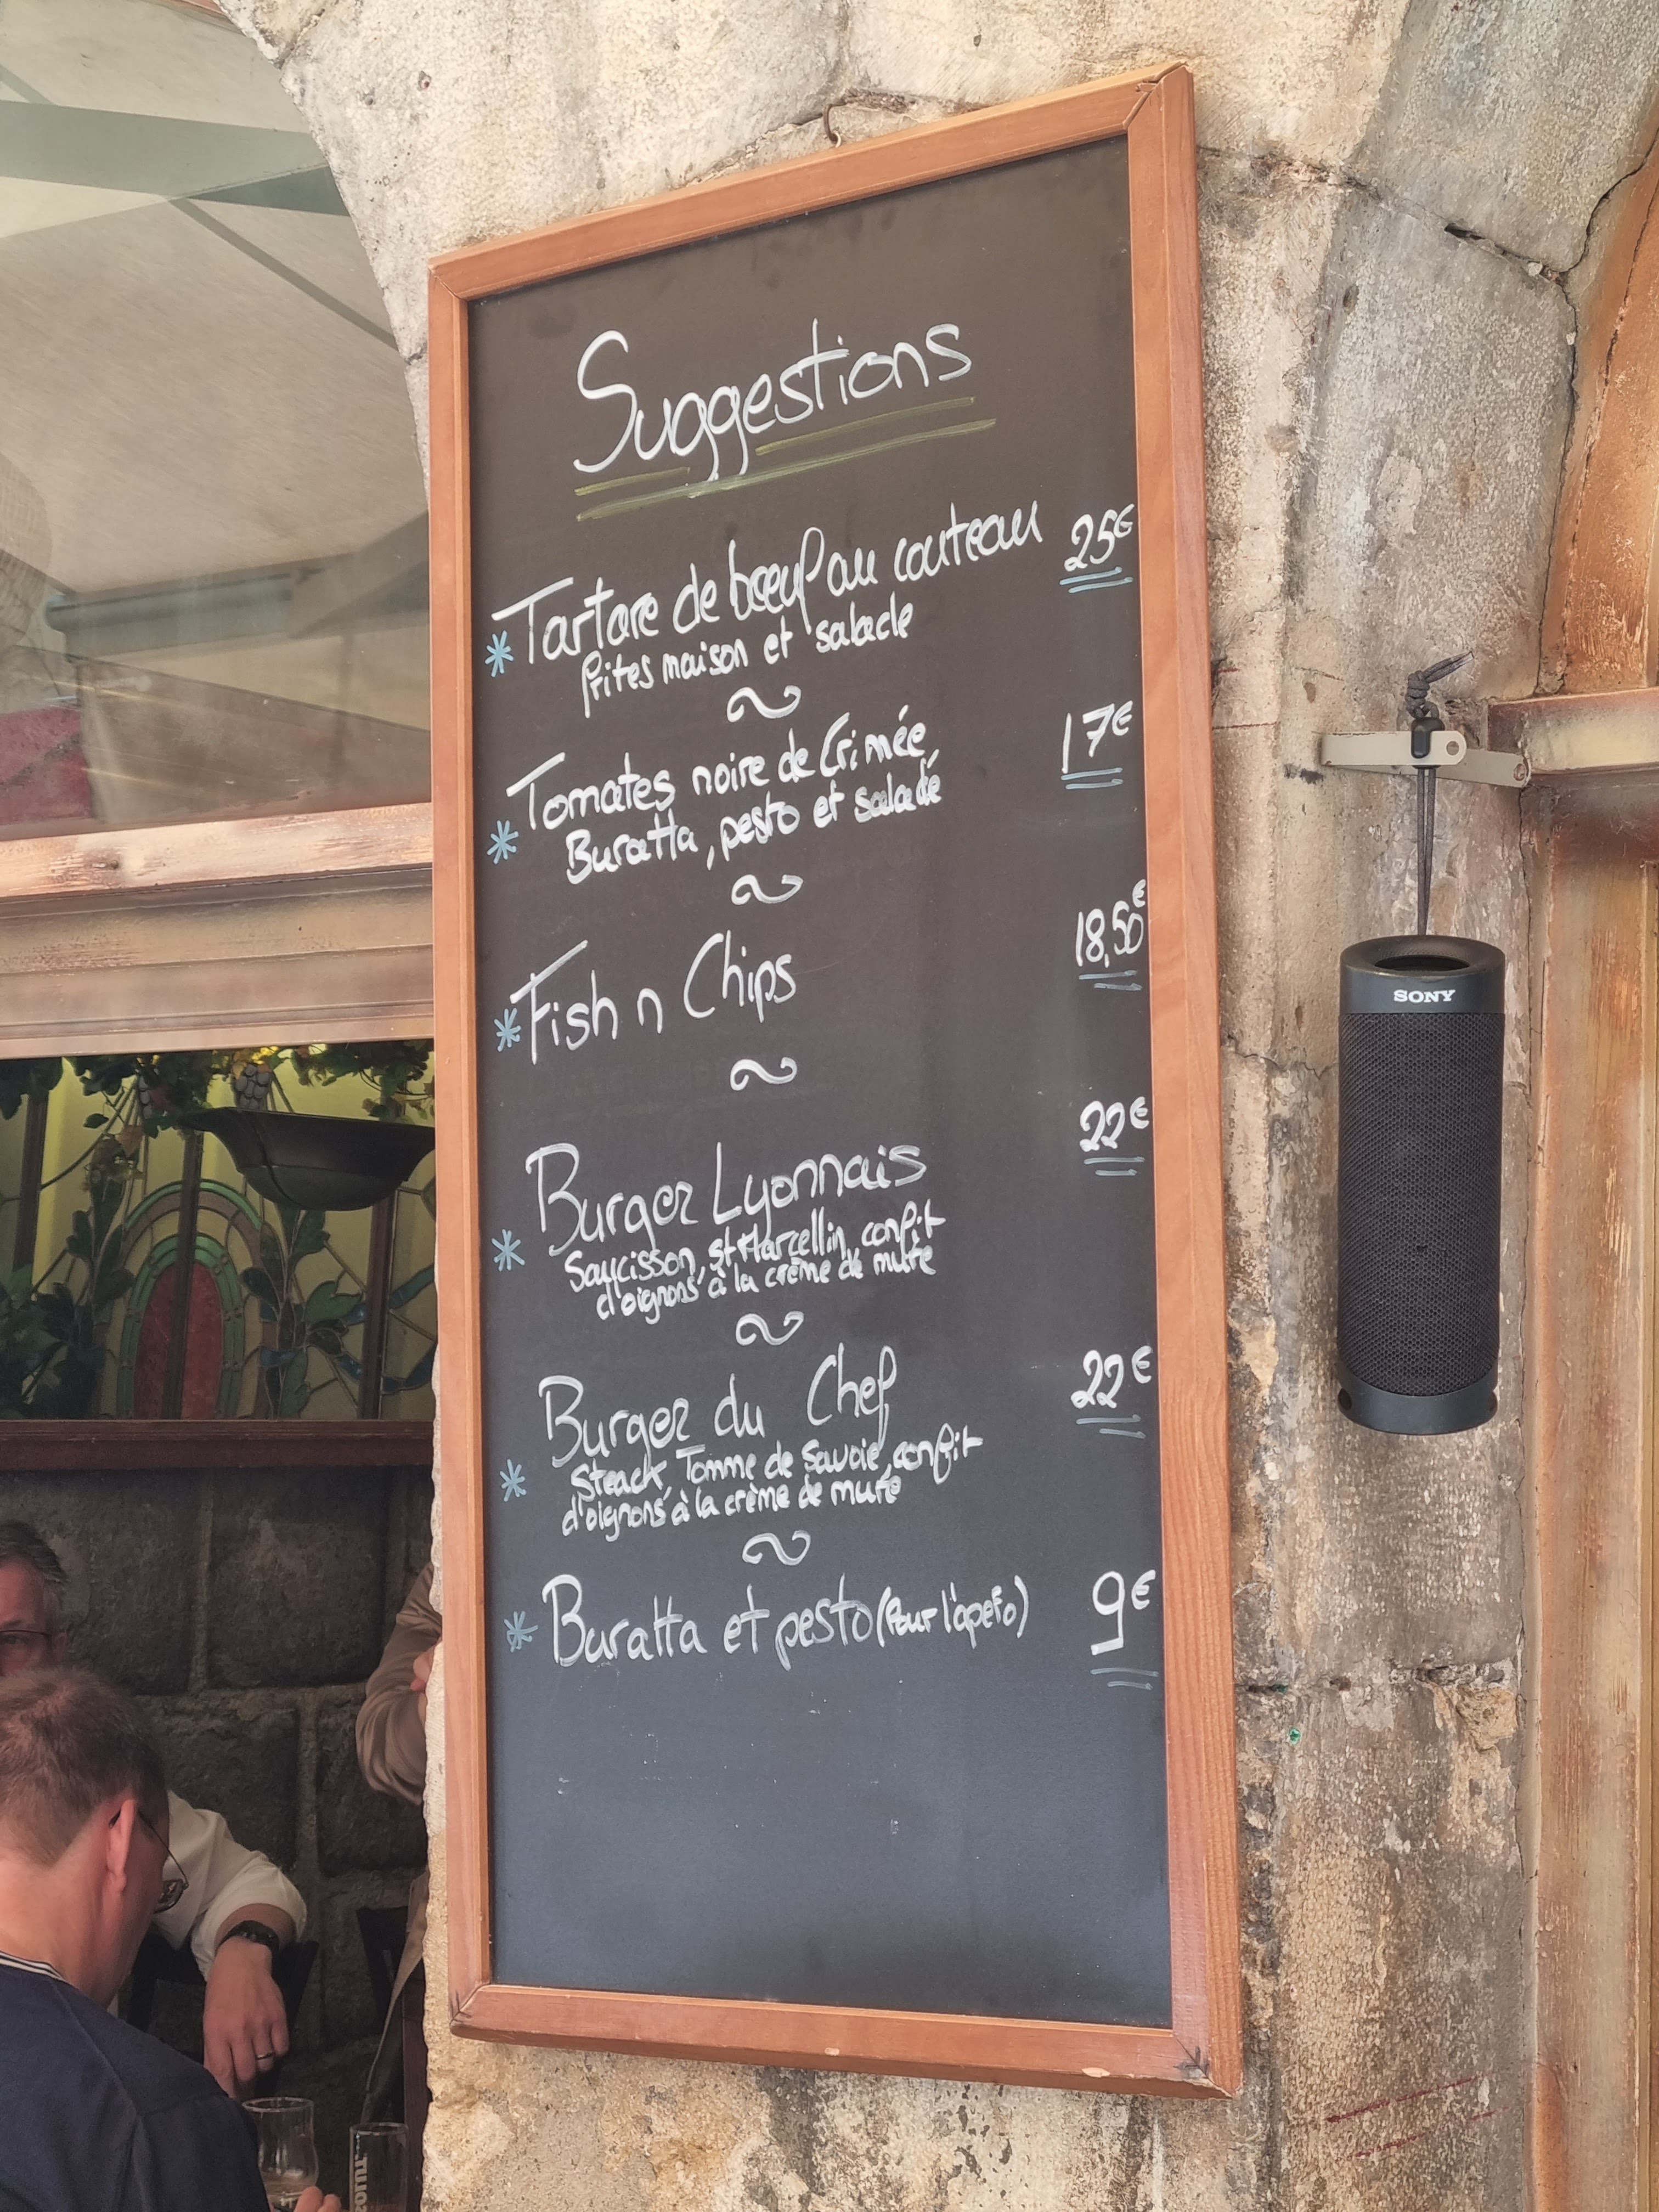 Suggestions
* Tartare de bœuf au couteau 25€
frites maison et salade
* Tomates noire de Crimée, 17€
Buratta, pesto et salade
* Fish n Chips 18,50€
* Burger Lyonnais 22€
Saucisson, St Marcellin, confit
d'oignons à la crème de mure
* Burger du Chef 22€
Steack, Tomme de Savoie, confit
d'oignons à la crème de mure
* Buratta et pesto (Pour l'apéro) 9€
SONY